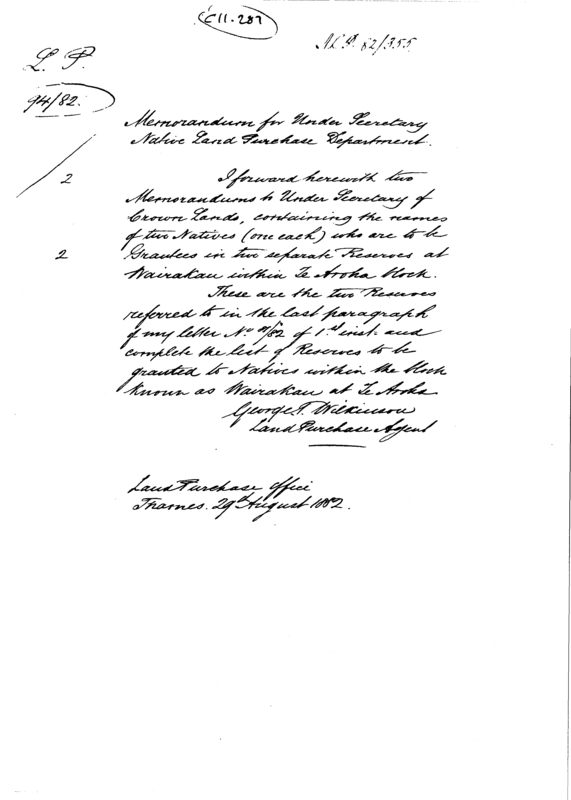 E11.287
N.L.P. 82/355
L. P.
94/82.
Memorandum for Under Secretary
Native Land Purchase Department.
2
I forward herewith two
Memorandums to Under Secretary of
Crown Lands, containing the names
of two Natives (one each) who are to be
2
Grantees in two separate Reserves at
Wairakau within Te Aroha block.
These are the two Reserves
referred to in the last paragraph
of my letter No /82 of 1st inst. and
complete the list of Reserves to be
granted to Natives within the block
known as Wairakau at Te Aroha
George T. Wilkinson
Land Purchase Agent
Land Purchase Office
Thames. 29th August 1882.